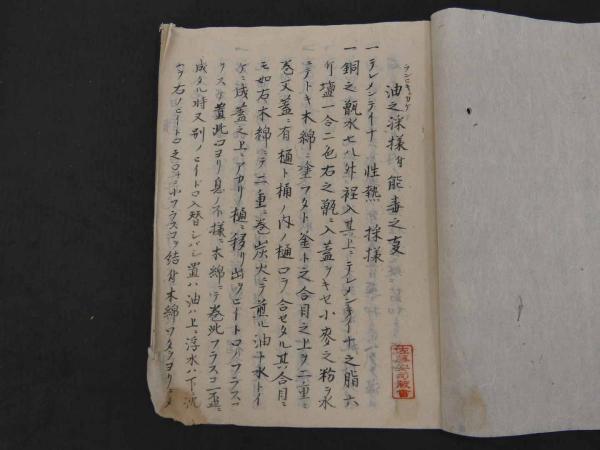 ランビキカケ
油之採様并能毒之事
一テレメンテイナ 性熱 採様
一銅之甑水七八升程入其上ニテレメンテイナ之脂六
斤塩一合二色右之甑ニ入蓋ヲキセ小麦之粉ヲ水
ニテトキ木綿ニ塗フタト釜ト之合目之上ヲ二重ニ
巻又蓋ニ有樋ト桶ノ内ノ樋口ヲ合セタル其合目ニ
モ如右木綿ニテ二重ニ巻炭火ニテ煎ル油ト水トイ
ケニ成蓋之上ニアカリ樋ニ移リ出ヒイトロノフラスコ
ヲスケ置此口ヨリ息ノ不様ニ木綿ニテ巻此フラスコ一盃ニ
成タル時又別ノヒイドロ入替シバシ置ハ油ハ上ニ浮水ハ下ニ沈
右ノヒイトロ之口ニ小フラスコヲ結付木綿